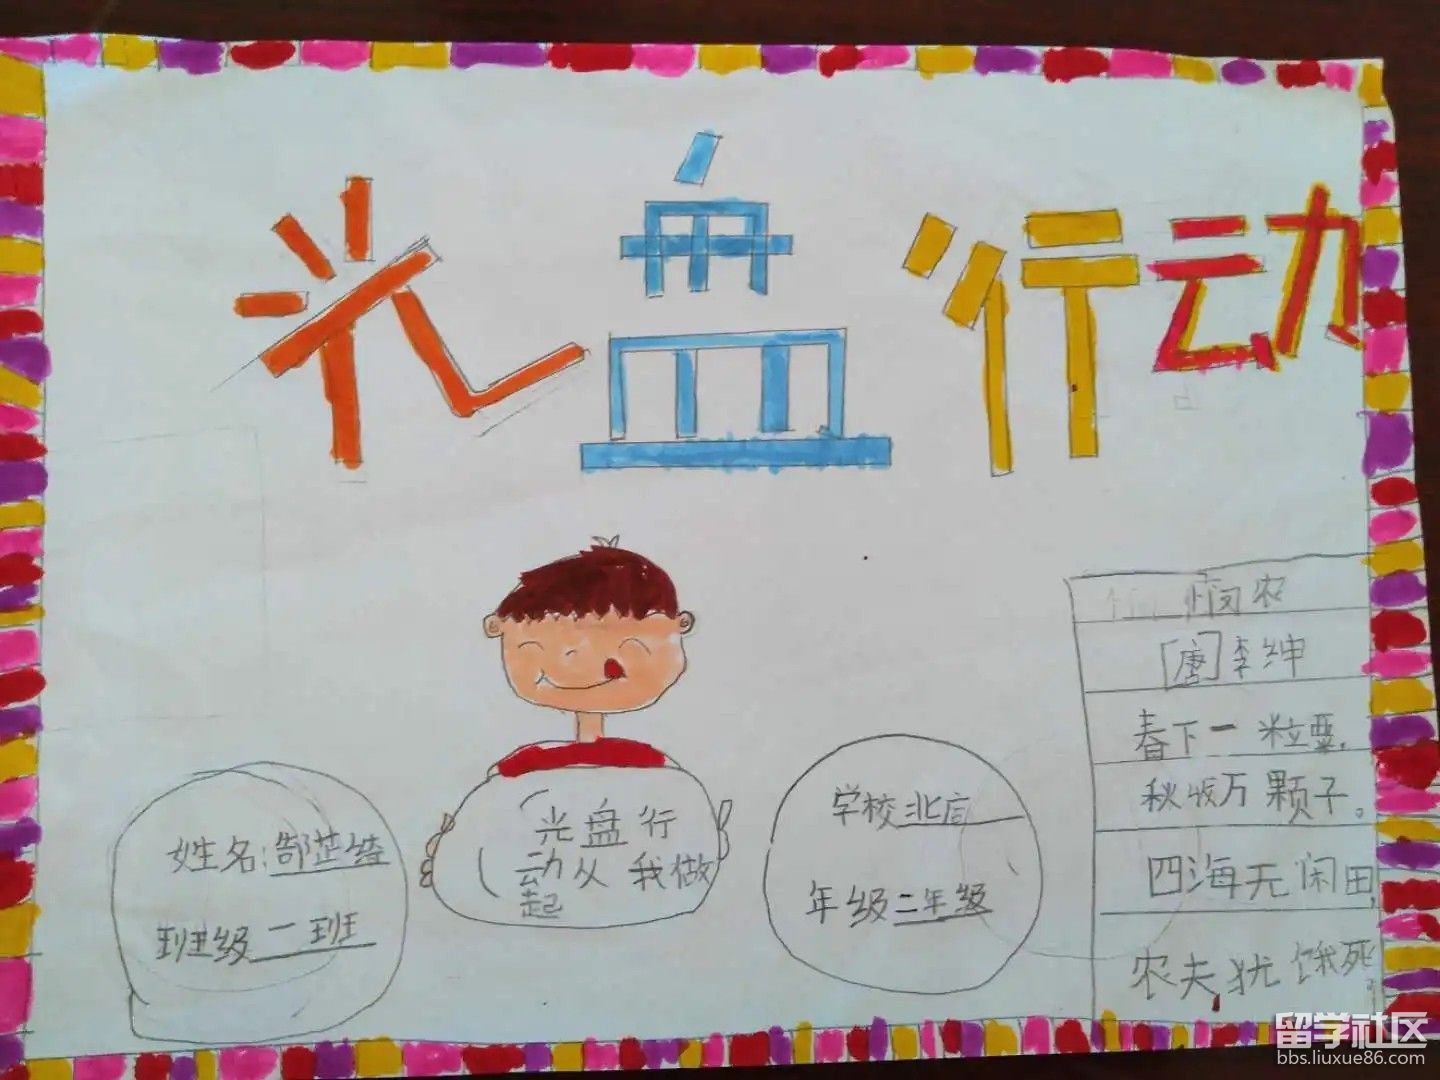 光盘行动
悯农
[唐]李绅
春下一粒粟,
秋收万颗子。
四海无闲田,
农夫犹饿死
光盘行
动从我做
起
学校北后
年级二年级
姓名:
班级一班
留学社区
bbs.liuxue86.com